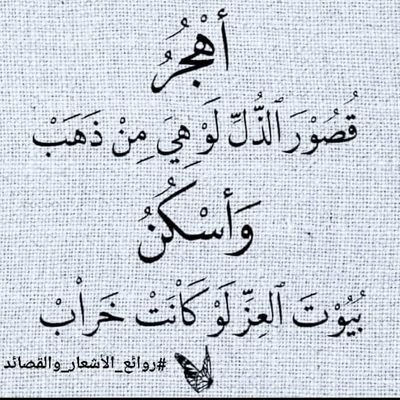 أَهْجُرُ
قُصُوْرَ ٱلذُّلِّ لَوْ هِيَ مِنْ ذَهَبْ
وَأَسْكُنُ
بُيُوْتَ ٱلعِزِّ لَوْ كَاْنَتْ خَرَاْبْ
#روائع_الأشعار_والقصائد